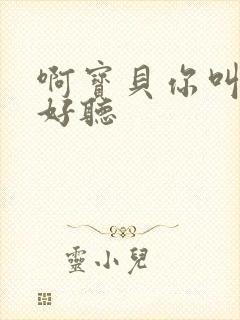 啊寳貝你叫
好聽
靈小兒